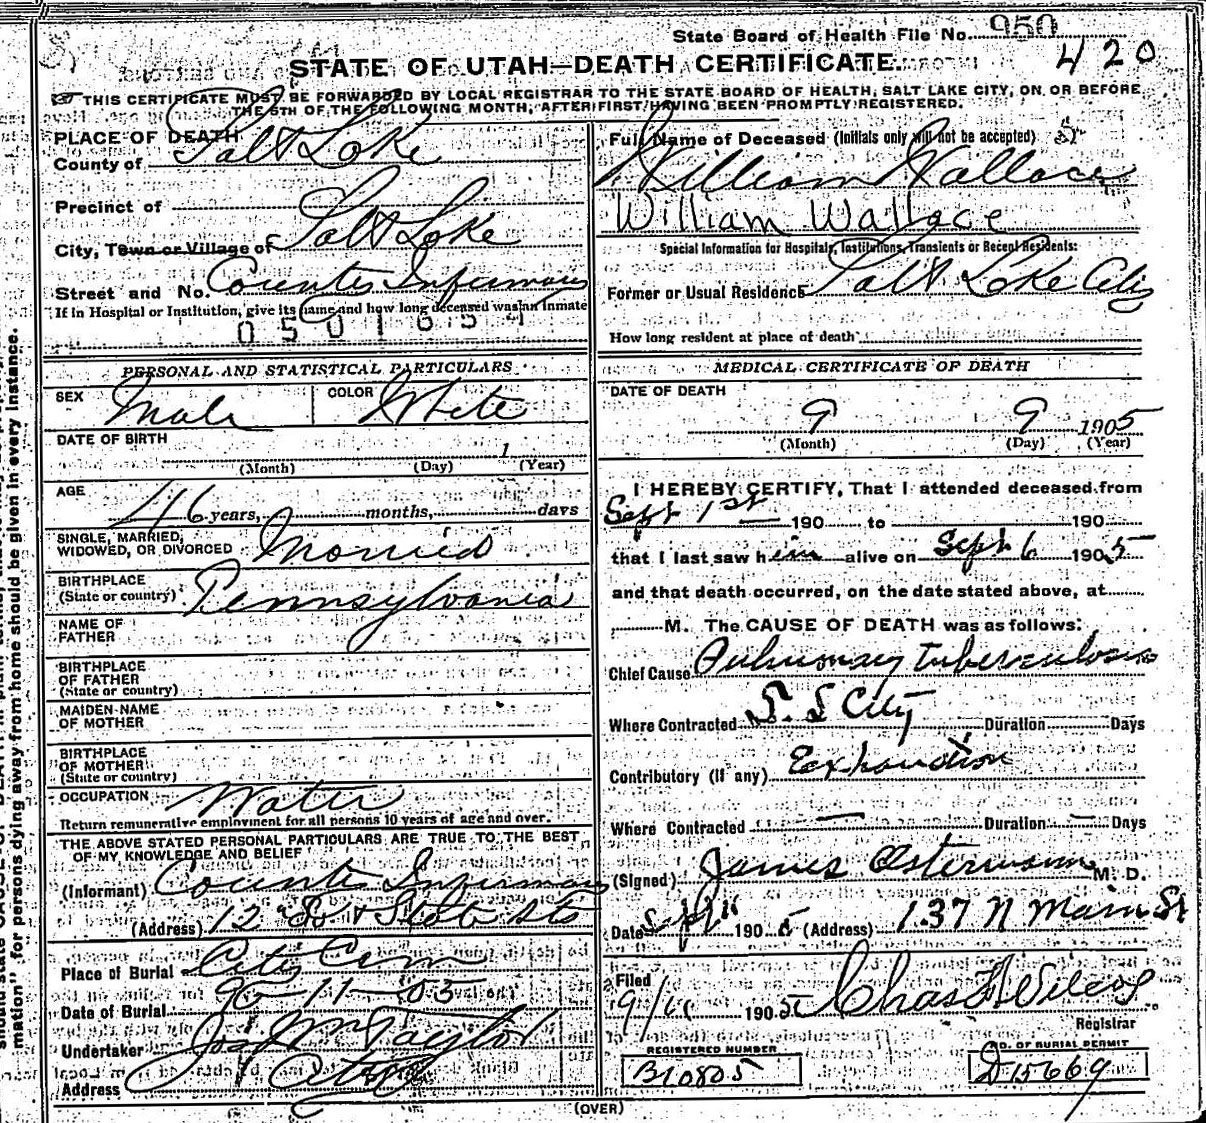 State Board of Health File No. 950
420
STATE OF UTAH—DEATH CERTIFICATE.
THIS CERTIFICATE MUST BE FORWARDED BY LOCAL REGISTRAR TO THE STATE BOARD OF HEALTH, SALT LAKE CITY, ON OR BEFORE
THE 5TH OF THE FOLLOWING MONTH, AFTER FIRST HAVING BEEN PROMPTLY REGISTERED.
PLACE OF DEATH
County of Salt Lake
Precinct of
City, Town or Village of Salt Lake
Street and No. County Infirmary
If in Hospital or Institution, give its name and how long deceased was an inmate
0501654
PERSONAL AND STATISTICAL PARTICULARS
SEX Male COLOR White
DATE OF BIRTH
1
(Month) (Day) (Year)
AGE
46 years, months, days
SINGLE, MARRIED,
WIDOWED, OR DIVORCED Married
BIRTHPLACE
(State or country) Pennsylvania
NAME OF
FATHER
BIRTHPLACE
OF FATHER
(State or country)
MAIDEN NAME
OF MOTHER
BIRTHPLACE
OF MOTHER
(State or country)
OCCUPATION Waiter
Return remunerative employment for all persons 10 years of age and over.
THE ABOVE STATED PERSONAL PARTICULARS ARE TRUE TO THE BEST
OF MY KNOWLEDGE AND BELIEF
(Informant) County Infirmary
(Address) 12 So & State Sts
Place of Burial City Cem
Date of Burial 9-11-05
Undertaker Jos Wm Taylor
Address City
Full Name of Deceased (Initials only will not be accepted)
William Wallace
William Wallace
Special Information for Hospitals, Institutions, Transients or Recent Residents:
Former or Usual Residence Salt Lake City
How long resident at place of death
MEDICAL CERTIFICATE OF DEATH
DATE OF DEATH
9 9 1905
(Month) (Day) (Year)
I HEREBY CERTIFY, That I attended deceased from
Sept 1st 190 to 190
that I last saw him alive on Sept 6 1905
and that death occurred, on the date stated above, at
M. The CAUSE OF DEATH was as follows:
Chief Cause Pulmonary Tuberculosis
Where Contracted S. L City Duration Days
Contributory (if any) Exhaustion
Where Contracted — Duration — Days
(Signed) James M. D.
Date Sept 11 1905 (Address) 137 N Main St
Filed
9/11 1905 Chas F Wilcox
Registrar
REGISTERED NUMBER
B10805
NO. OF BURIAL PERMIT
D15669
(OVER)
mation" for persons dying away from home should be given in every instance.